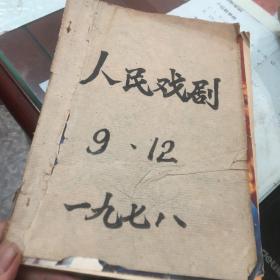 人民戏剧
9、12
一九七八